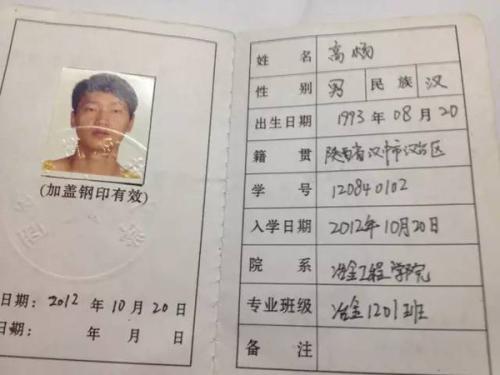 (加盖钢印有效)
日期: 2012 年 10 月 20 日
日期: 年 月 日
姓 名 高炳
性 别 男 民 族 汉
出生日期 1993 年 08 月 20
籍 贯 陕西省汉中市汉台区
学 号 120840102
入学日期 2012年10月20日
院 系 冶金工程学院
专业班级 冶金1201班
备 注